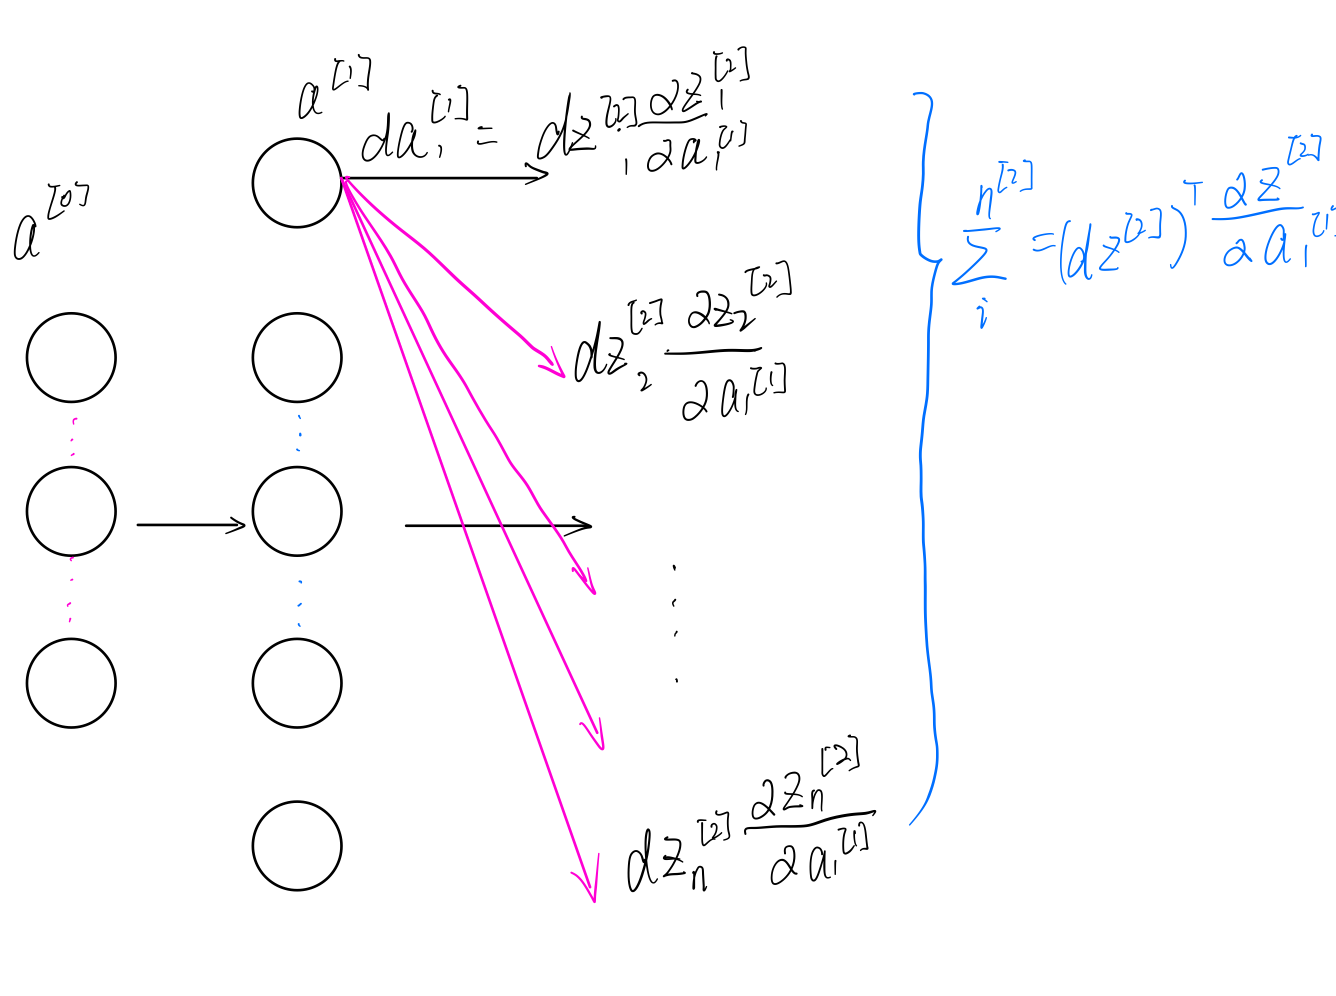 a^[1]
da_1^[1] = dz_1^[2] ∂z_1^[2] / ∂a_1^[1]
a^[0]
dz_2^[2] ∂z_2^[2] / ∂a_1^[1]
dz_n^[2] ∂z_n^[2] / ∂a_1^[1]
∑_i^{n^[2]} = (dz^[2])^T ∂z^[2] / ∂a_1^[1]